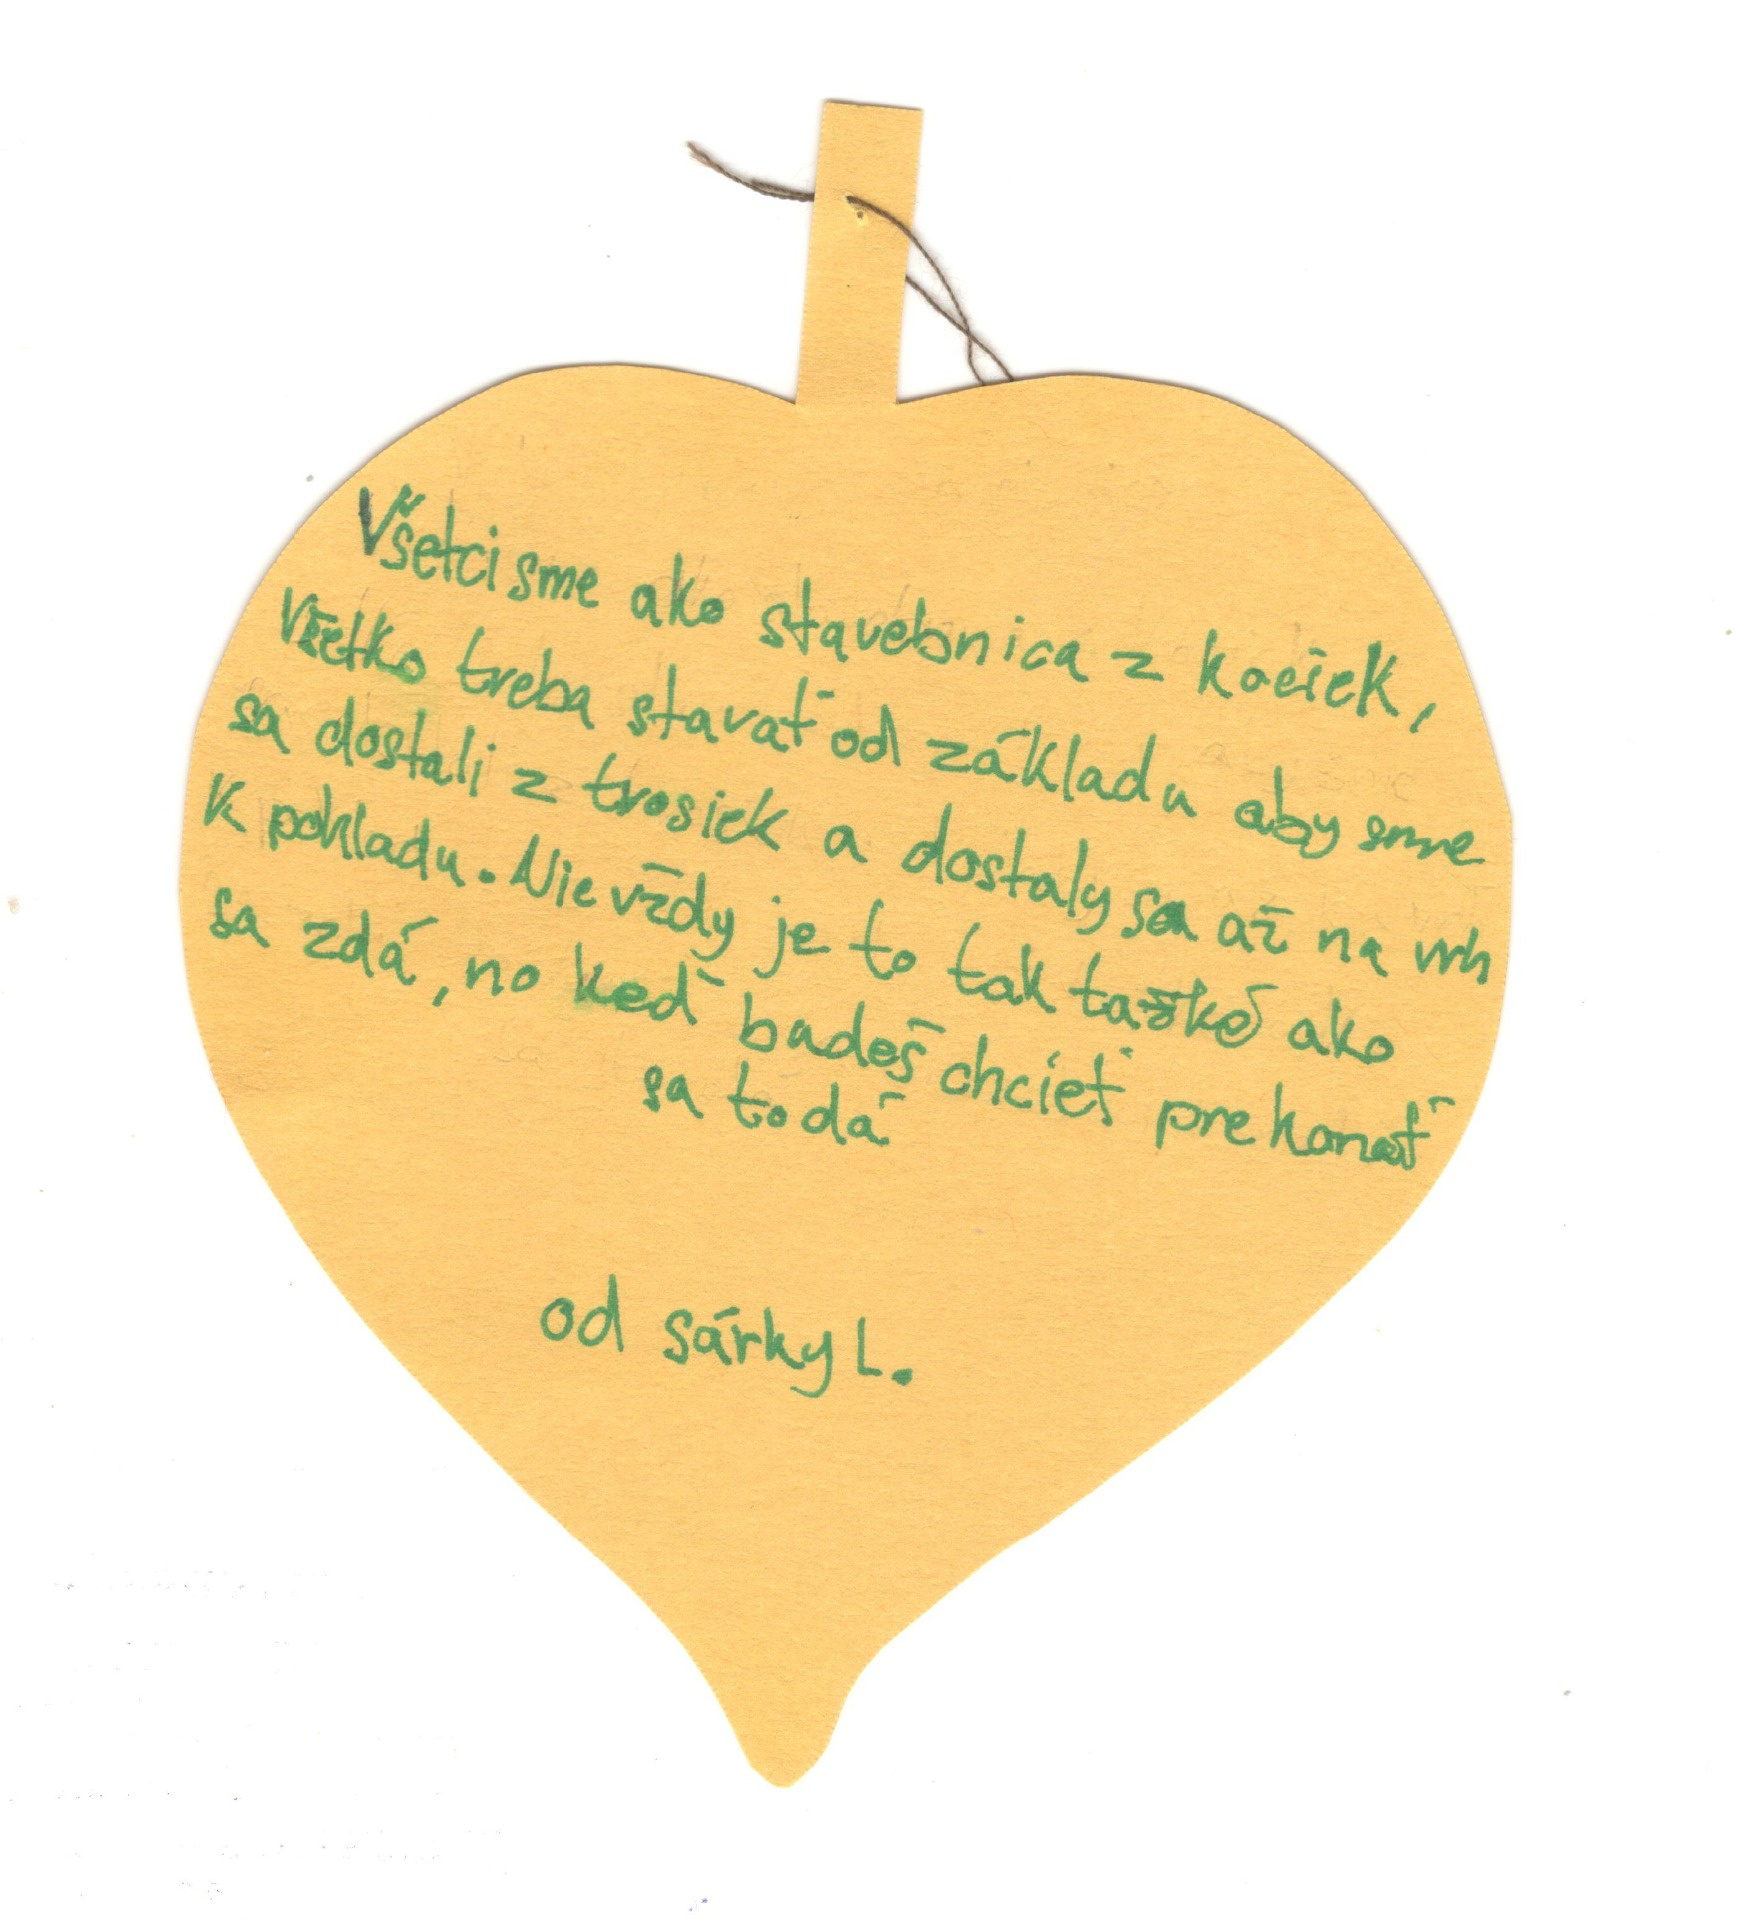 Všetci sme ako stavebnica z kociek,
Všetko treba stavať od základu aby sme
sa dostali z trosiek a dostaly sa až na vrh
k pokladu. Nie vždy je to tak ťažké ako
sa zdá, no keď budeš chcieť prekonať
sa to dá
od sárky L.